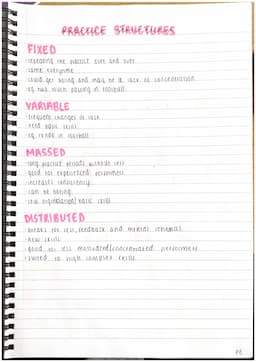 PRACTICE STRUCTURES
FIXED
· repeating the practice over and over
· same everytime
· could get boring and may be a lack of concentration
· eg two touch passing in football
VARIABLE
· frequent changes of task
· need basic skills
· eg rondo in football
MASSED
· long practice periods without rest
· good for experienced performers
· increases consistency
· can be boring
· basic skills
DISTRIBUTED
· breaks for rest, feedback and mental rehearsal
· new skills
· good for less motivated/ performers
· suited to high complex skills